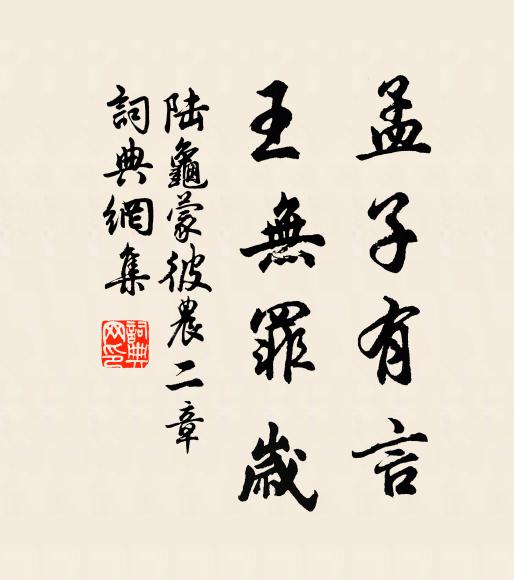 孟子有言
王無罪歲
陸龜蒙彼農二章
詞典網集
詞典网印